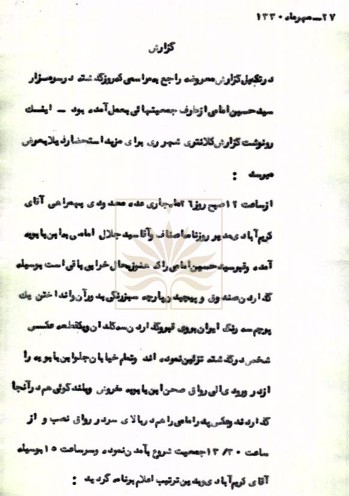 ۲۷ـ مهرماه ۱۳۳۰
گزارش
در تکمیل گزارش معروضه راجع بمراسمی که روز گذشته در سر مزار
سید حسین امامی از طرف جمعیتهائی بعمل آمده بود ـ اینک
رونوشت گزارش کلانتری شهر ری برای مزید استحضار ذیلا بعرض
میرسد :
از ساعت ۱۲ صبح روز ۲۶ ماه جاری عده معدودی بهمراهی آقای
کریم آبادی مدیر روزنامه اصناف و آقا سید جلال امامی به ابن بابویه
آمده و قبر سید حسین امامی را که هنوز بحال خرابی باقی است بوسیله
گذاردن صندوق و پیچیدن پارچه سبز رنگی بدور آن و انداختن یک
پرچم سه رنگ ایران بروی قبر و گذاردن سه گلدان و یکقطعه عکس
شخص درگذشته تزئین نموده اند و تمام خیابان جلو ابن بابویه را
از در ورودی الی رواق صحن ابن بابویه مفروش و بلندگوئی هم در آنجا
گذاردند و عکس پدر امامی را هم در بالای سر در رواق نصب و از
ساعت ۱۳/۳۰ جمعیت شروع بآمدن نموده و سر ساعت ۱۵ بوسیله
آقای کریم آبادی بدین ترتیب اعلام برنامه گردید :